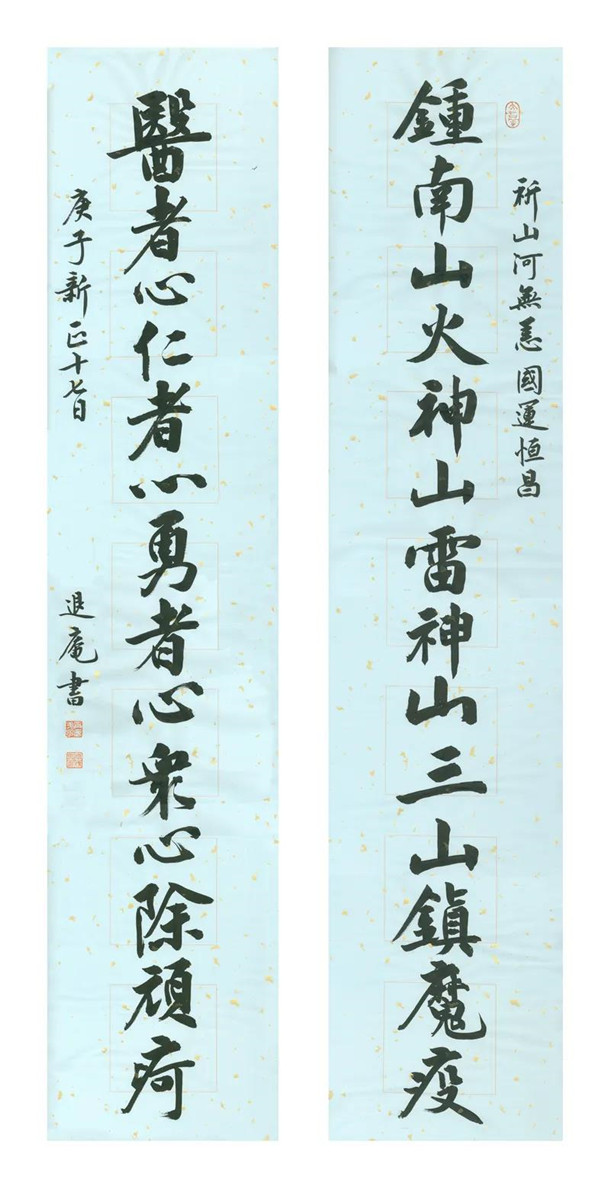 祈山河無恙國運恒昌
鍾南山火神山雷神山三山鎮魔疫
醫者心仁者心勇者心眾心除頑疴
庚子新正十七日
退庵書